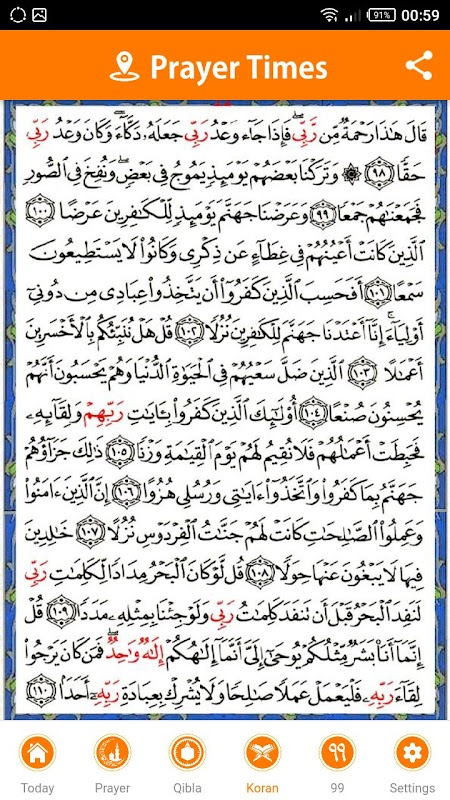 91% 00:59
Prayer Times
قَالَ هَٰذَا رَحْمَةٌ مِّن رَّبِّي فَإِذَا جَاءَ وَعْدُ رَبِّي جَعَلَهُ دَكَّاءَ وَكَانَ وَعْدُ رَبِّي
حَقًّا ٩٨ ۞ وَتَرَكْنَا بَعْضَهُمْ يَوْمَئِذٍ يَمُوجُ فِي بَعْضٍ وَنُفِخَ فِي الصُّورِ
فَجَمَعْنَاهُمْ جَمْعًا ٩٩ وَعَرَضْنَا جَهَنَّمَ يَوْمَئِذٍ لِّلْكَافِرِينَ عَرْضًا ١٠٠
الَّذِينَ كَانَتْ أَعْيُنُهُمْ فِي غِطَاءٍ عَن ذِكْرِي وَكَانُوا لَا يَسْتَطِيعُونَ
سَمْعًا ١٠١ أَفَحَسِبَ الَّذِينَ كَفَرُوا أَن يَتَّخِذُوا عِبَادِي مِن دُونِي
أَوْلِيَاءَ إِنَّا أَعْتَدْنَا جَهَنَّمَ لِلْكَافِرِينَ نُزُلًا ١٠٢ قُلْ هَلْ نُنَبِّئُكُم بِالْأَخْسَرِينَ
أَعْمَالًا ١٠٣ الَّذِينَ ضَلَّ سَعْيُهُمْ فِي الْحَيَوٰةِ الدُّنْيَا وَهُمْ يَحْسَبُونَ أَنَّهُمْ
يُحْسِنُونَ صُنْعًا ١٠٤ أُولَٰئِكَ الَّذِينَ كَفَرُوا بِآيَاتِ رَبِّهِمْ وَلِقَائِهِ
فَحَبِطَتْ أَعْمَالُهُمْ فَلَا نُقِيمُ لَهُمْ يَوْمَ الْقِيَامَةِ وَزْنًا ١٠٥ ذَٰلِكَ جَزَاؤُهُمْ
جَهَنَّمُ بِمَا كَفَرُوا وَاتَّخَذُوا آيَاتِي وَرُسُلِي هُزُوًا ١٠٦ إِنَّ الَّذِينَ آمَنُوا
وَعَمِلُوا الصَّالِحَاتِ كَانَتْ لَهُمْ جَنَّاتُ الْفِرْدَوْسِ نُزُلًا ١٠٧ خَالِدِينَ
فِيهَا لَا يَبْغُونَ عَنْهَا حِوَلًا ١٠٨ قُل لَّوْ كَانَ الْبَحْرُ مِدَادًا لِّكَلِمَاتِ رَبِّي
لَنَفِدَ الْبَحْرُ قَبْلَ أَن تَنفَدَ كَلِمَاتُ رَبِّي وَلَوْ جِئْنَا بِمِثْلِهِ مَدَدًا ١٠٩ قُلْ
إِنَّمَا أَنَا بَشَرٌ مِّثْلُكُمْ يُوحَىٰ إِلَيَّ أَنَّمَا إِلَٰهُكُمْ إِلَٰهٌ وَاحِدٌ فَمَن كَانَ يَرْجُوا
لِقَاءَ رَبِّهِ فَلْيَعْمَلْ عَمَلًا صَالِحًا وَلَا يُشْرِكْ بِعِبَادَةِ رَبِّهِ أَحَدًا ١١٠
٩٩
Today Prayer Qibla Koran 99 Settings